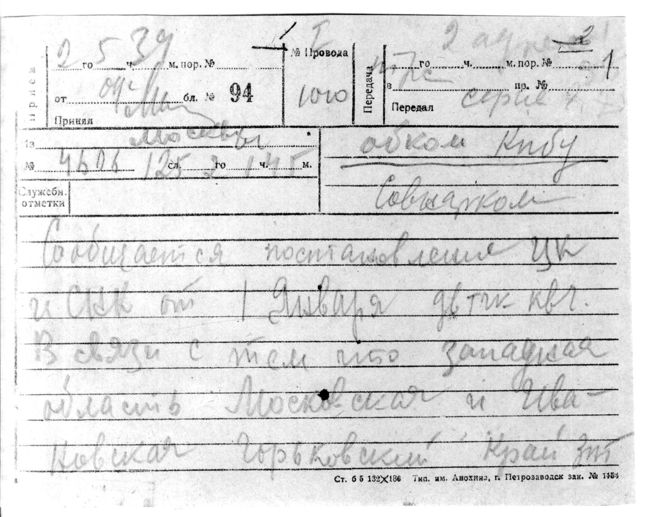 2 го 5 ч. 39 м. пор. №
№ Провода
1010
го ч. м. пор. №
2 адреса
от бл. № 94
Принял
Передача
в пр. № 1
Передал серия
Из Москвы
№ 4606 125 сл. 2 го ч. 145 м.
обком Кпбу
Служебн. отметки
Совнарком
Сообщается постановления ЦК
и СНК от 1 Января двтчк квч.
В связи с тем что западная
область Московская и Ива-
новская Горьковский Край зпт
Ст. б 5 132×186 Тип. им. Анохина, г. Петрозаводск зак. № 1484